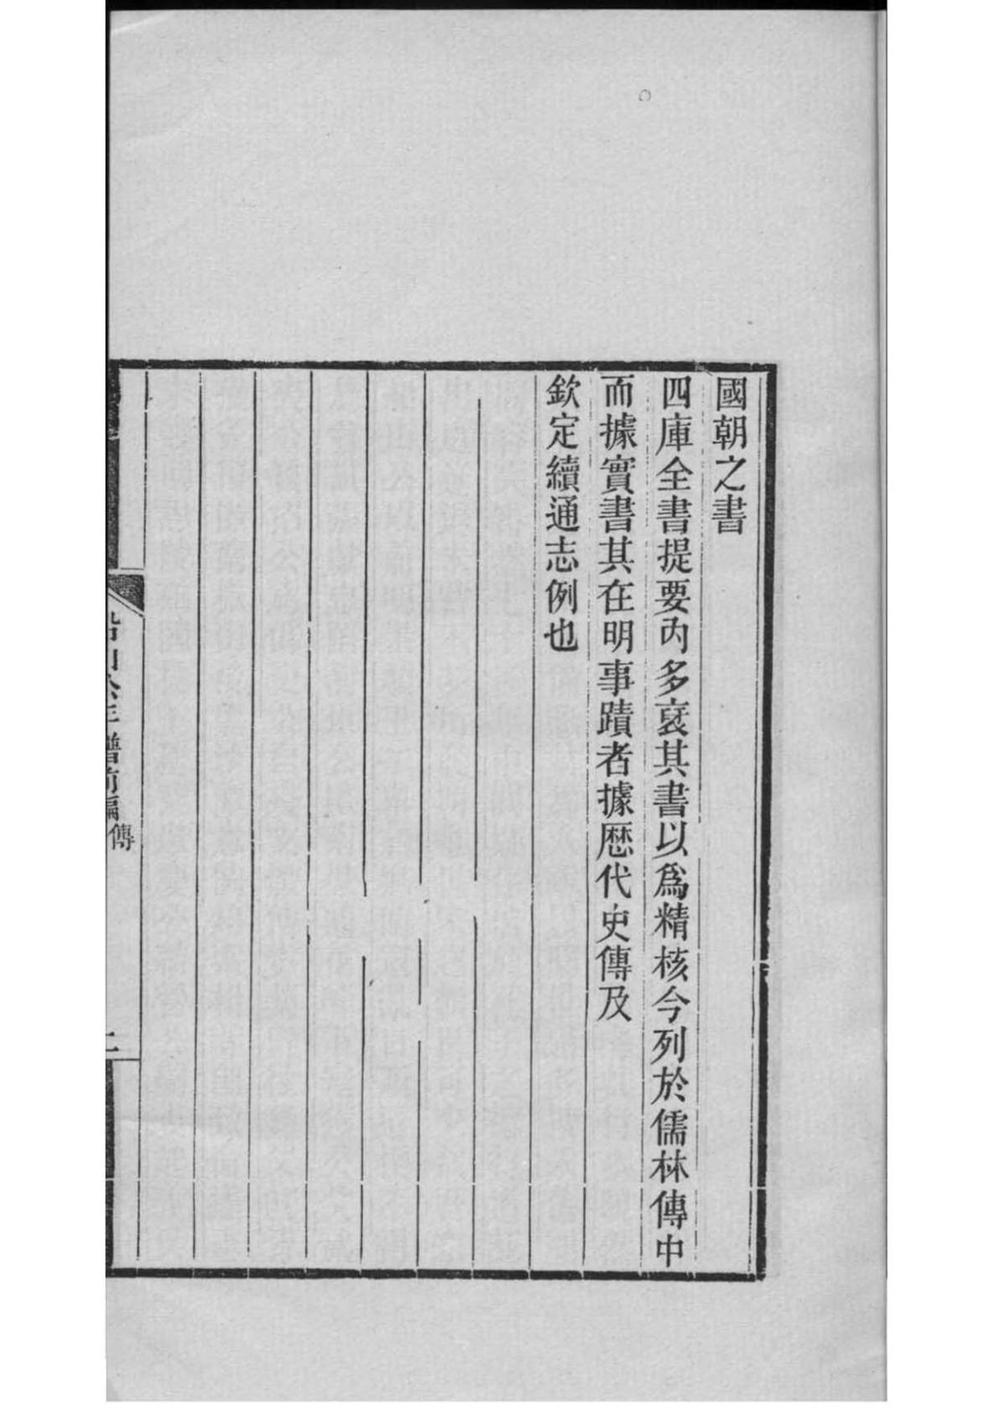 國朝之書
四庫全書提要內多裒其書以爲精核今列於儒林傳中
而據實書其在明事蹟者據歷代史傳及
欽定續通志例也
船山公年譜前編 傳